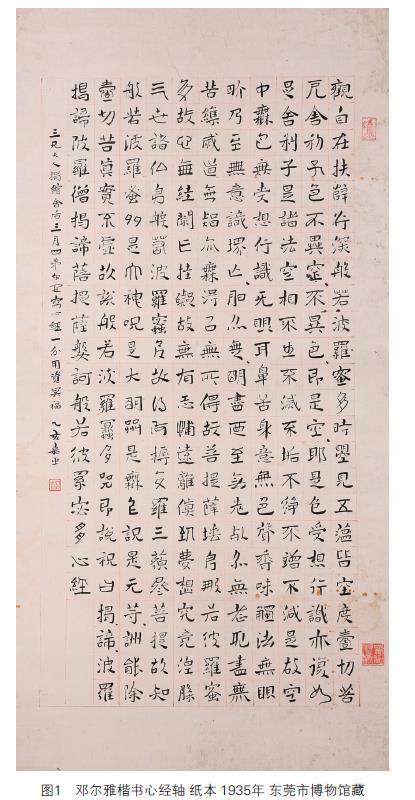 觀自在扶薛行深般若波羅蜜多時瞾見五蘊皆空度壹切苦
戹舍利子色不異空不異色即是空耶是色受想行識亦復如
是舍利子是諸法空相不生不滅不垢不淨不增不減是故空
中無色無受想行識无眼耳鼻舌身意無色聲香味觸法無眼
界乃至無意識界亡明亦無明盡乃至无老死亦无老死盡無
苦集滅道無智亦無得以無所得故菩提薩埵般若波羅蜜
多故心無絓閡亡挂礙故無有恐怖遠離傎到夢想究竟涅槃
三世諸仏般若波羅蜜多故得阿耨多羅三藐參菩提故知
般若波羅蜜多是神咒是大明咒是無上咒是无等咒能除
壹切苦真實不虛故說般若波羅蜜多咒即說咒曰揭諦波羅
揭諦波羅僧揭諦菩提薩婆訶般若波羅蜜多心經
三兄大人三月寫心經一分用資冥福乙亥嘉平
图1 邓尔雅楷书心经轴 纸本 1935年 东莞市博物馆藏